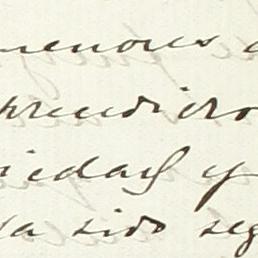 menores a
prendiero
iedad y
ya sido seg